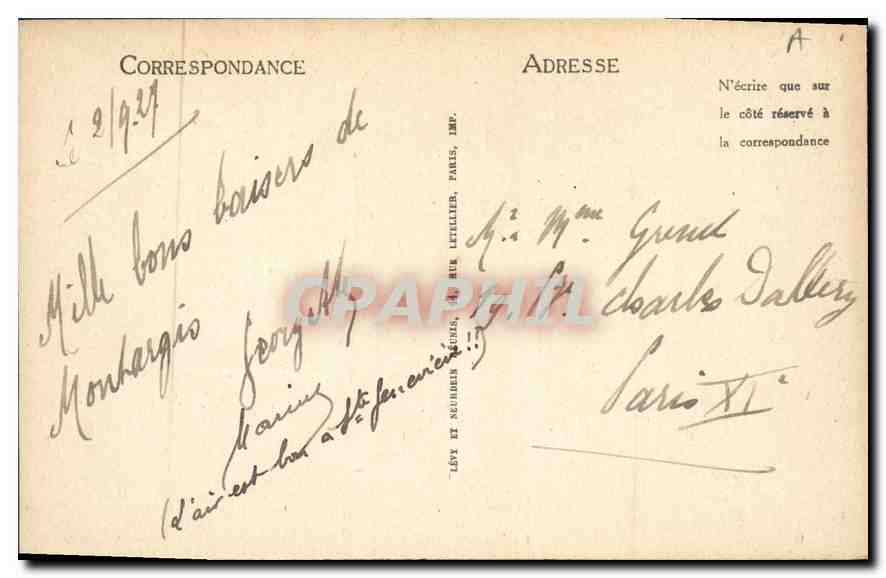 CORRESPONDANCE
Le 2/9.27
Mille bons baisers de
Montargis
Georgette
(l'air est bon à Ste Geneviève !!)
LÉVY ET NEURDEIN RÉUNIS, RUE LETELLIER, PARIS, IMP.
ADRESSE
A
N'écrire que sur
le côté réservé à
la correspondance
Mr Mme
Charles Dallery
Paris XIe
CPAPHIL